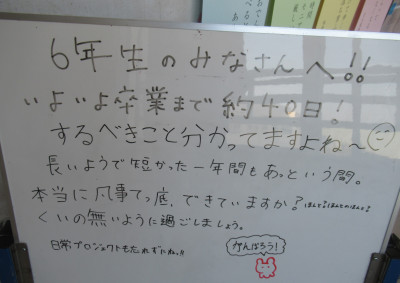 6年生のみなさんへ!!
いよいよ卒業まで約40日!
するべきこと分かってますよね〜
長いようで短かった一年間もあっという間。
本当に凡事てっ底、できていますか?ほんとに?ほんとのほんと?
くいの無いように過ごしましょう。
日常プロジェクトも忘れずにねっ!!
がんばろう!